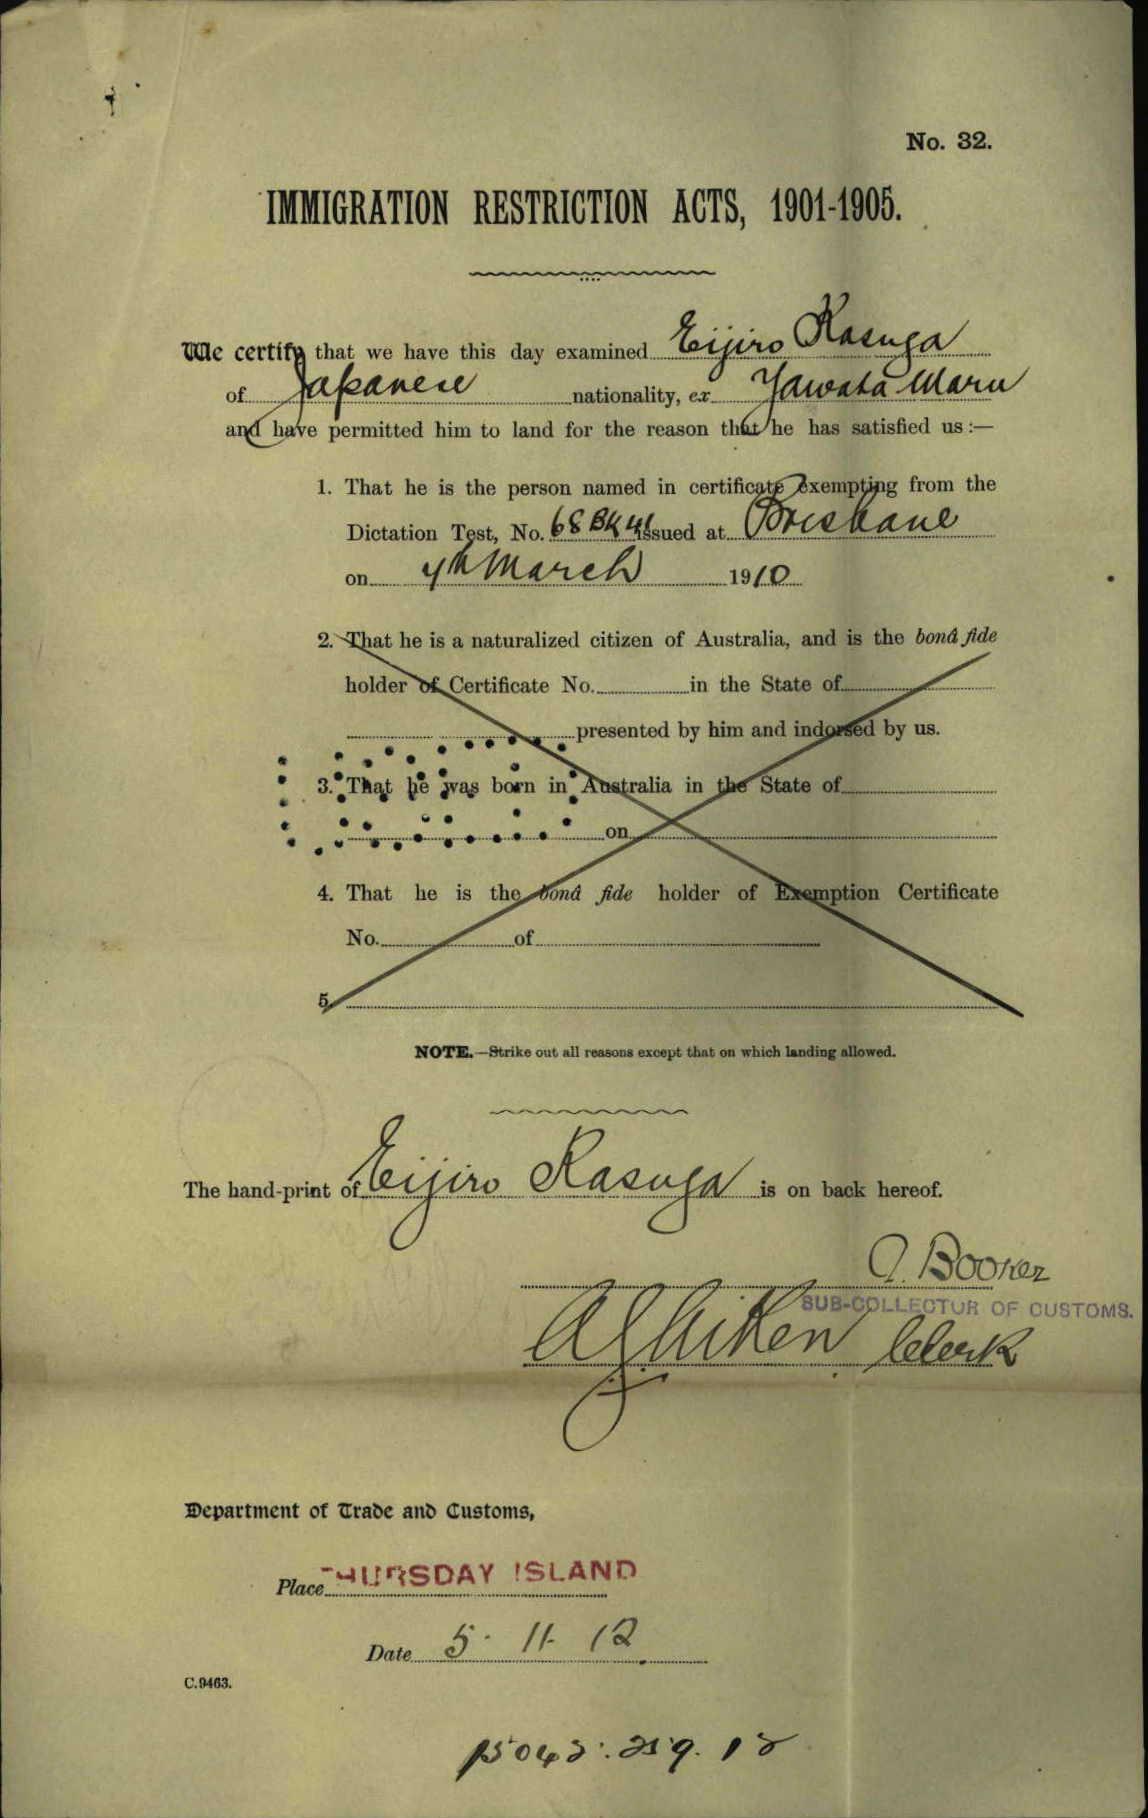 No. 32.
IMMIGRATION RESTRICTION ACTS, 1901-1905.
We certify that we have this day examined Eijiro Kasuga
of Japanese nationality, ex Yawata Maru
and have permitted him to land for the reason that he has satisfied us :—
1. That he is the person named in certificate exempting from the
Dictation Test, No. 68 BK 41 issued at Brisbane
on 4th March 1910
2. That he is a naturalized citizen of Australia, and is the bonâ fide
holder of Certificate No. in the State of
presented by him and indorsed by us.
3. That he was born in Australia in the State of
on
4. That he is the bonâ fide holder of Exemption Certificate
No. of
5.
NOTE.—Strike out all reasons except that on which landing allowed.
The hand-print of Eijiro Kasuga is on back hereof.
Booker
SUB-COLLECTOR OF CUSTOMS.
Aitken Clerk
Department of Trade and Customs,
Place THURSDAY ISLAND
Date 5. 11. 12
C.9463.